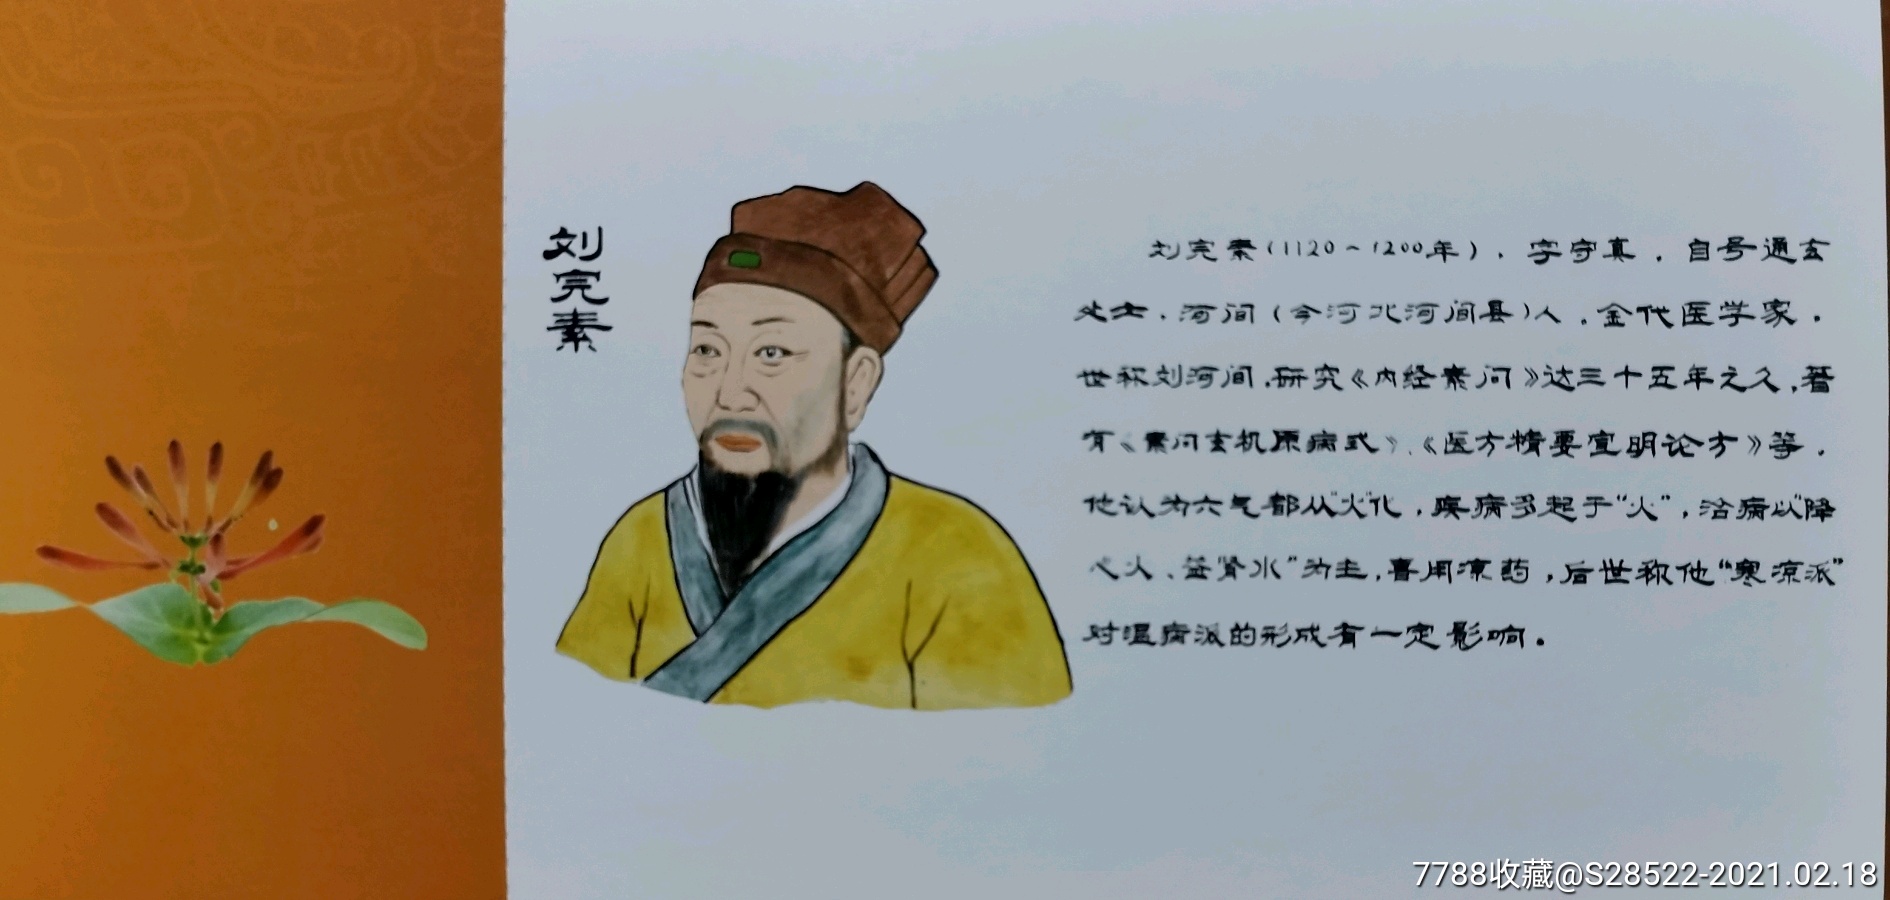 刘完素
刘完素(1120~1200年),字守真.自号通玄
处士.河间(今河北河间县)人.金代医学家.
世称刘河间.研究《内经素问》达三十五年之久,著
有《素问玄机原病式》、《医方精要宣明论方》等.
他认为六气都从“火”化,疾病多起于“火”,治病以“降
心火、益肾水”为主,喜用凉药,后世称他“寒凉派”
对温病派的形成有一定影响。
7788收藏@S28522-2021.02.18